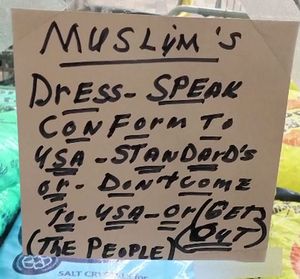 MUSLiM's
DrESS - SPEAK
CONFORM TO
USA - STANDARD'S
or - DONT COME
To - USA - Or (GET
(THE PEOPLE) OUT)
SALT CRY